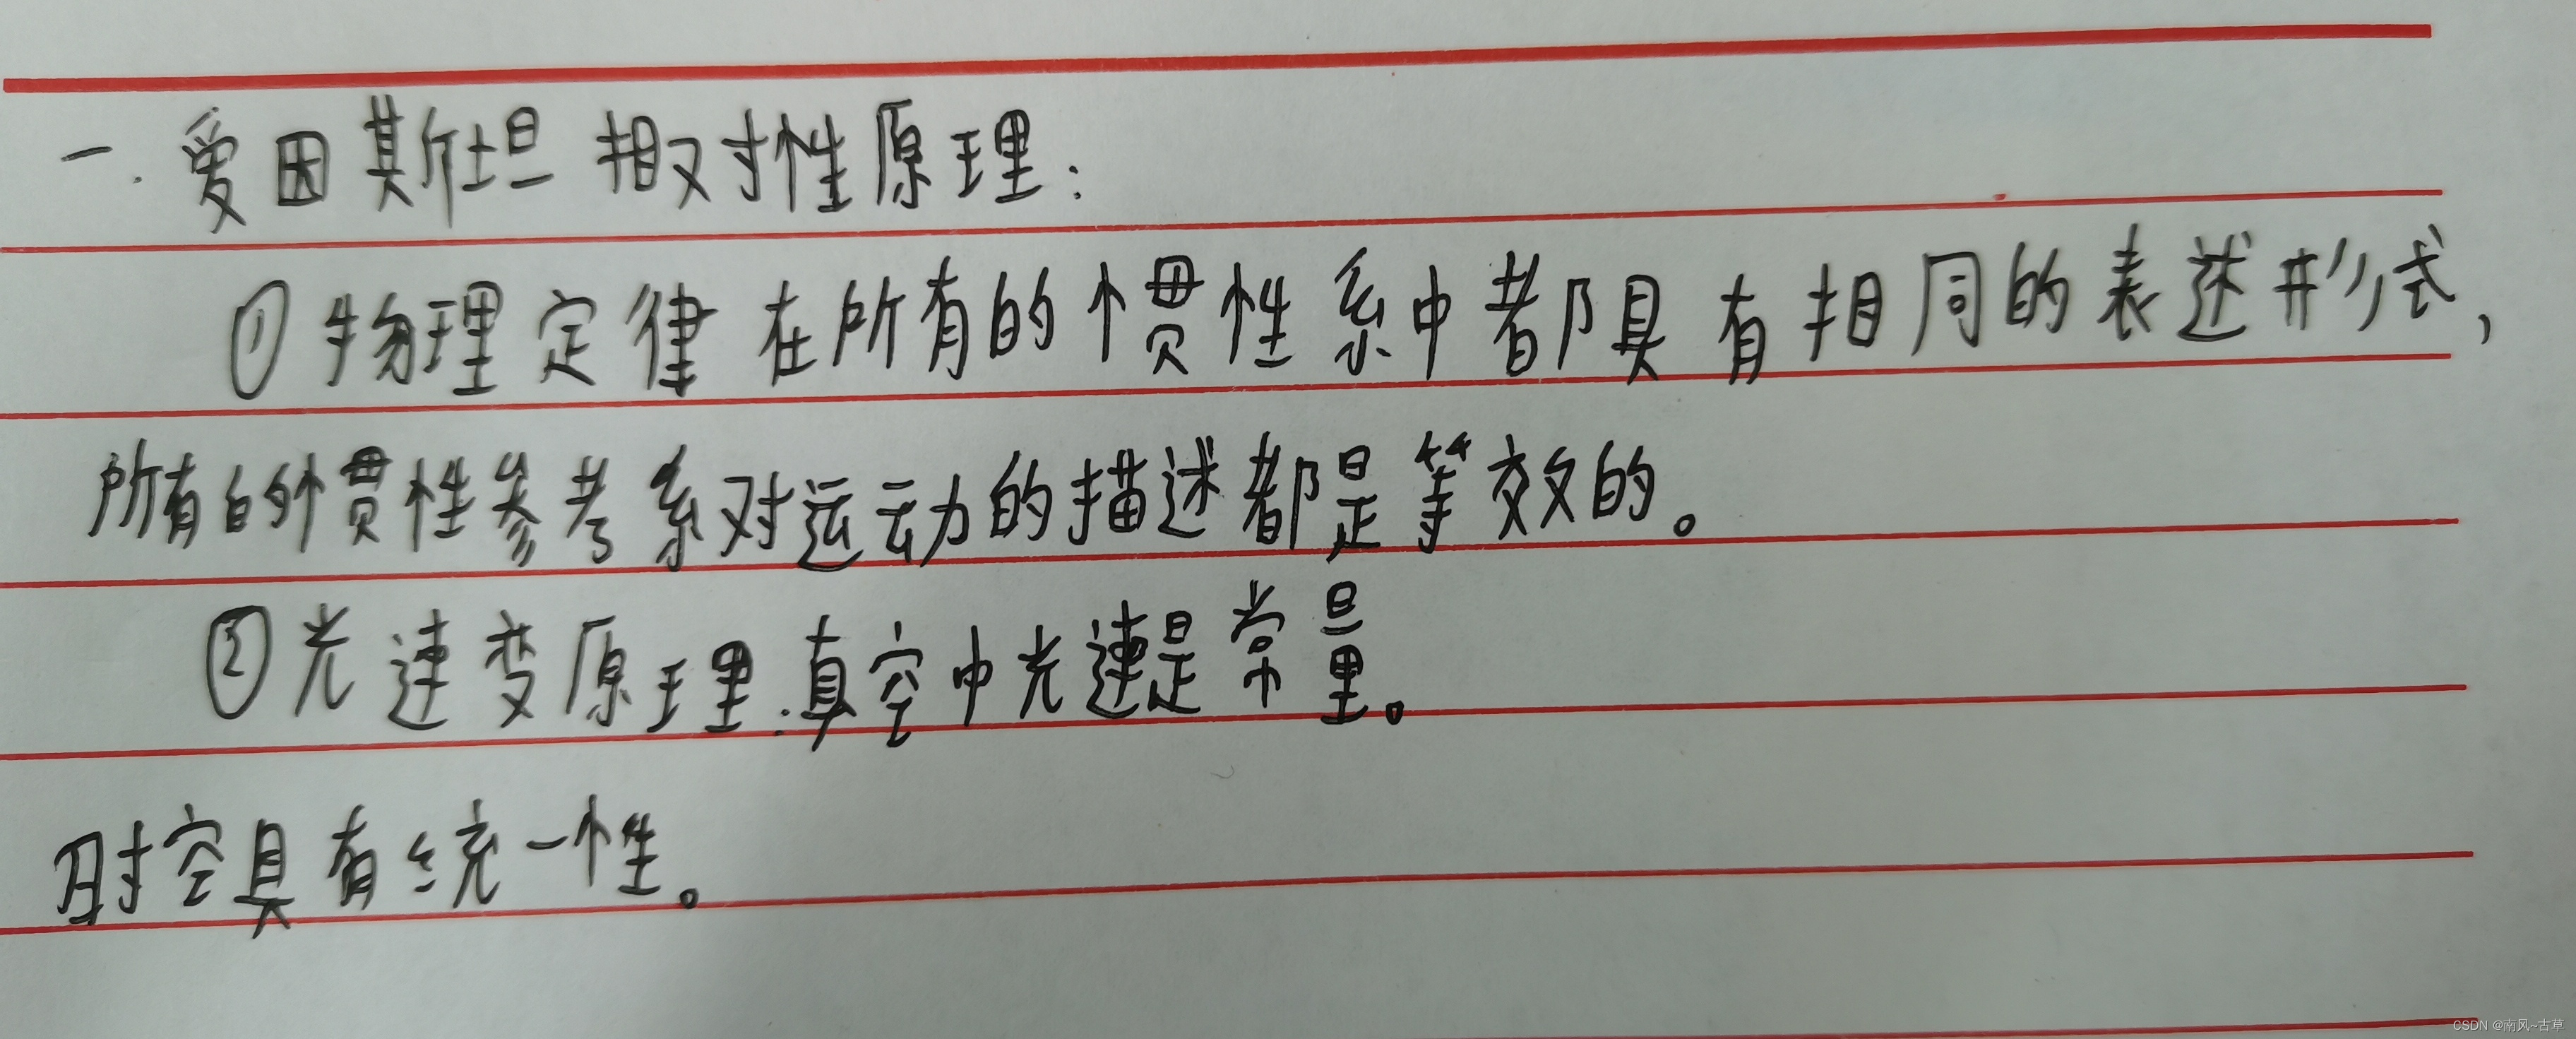 一.爱因斯坦相对性原理:
①物理定律在所有的惯性系中都具有相同的表述形式,
所有的惯性参考系对运动的描述都是等效的。
②光速变原理.真空中光速是常量。
时空具有统一性。
CSDN @南风~古草